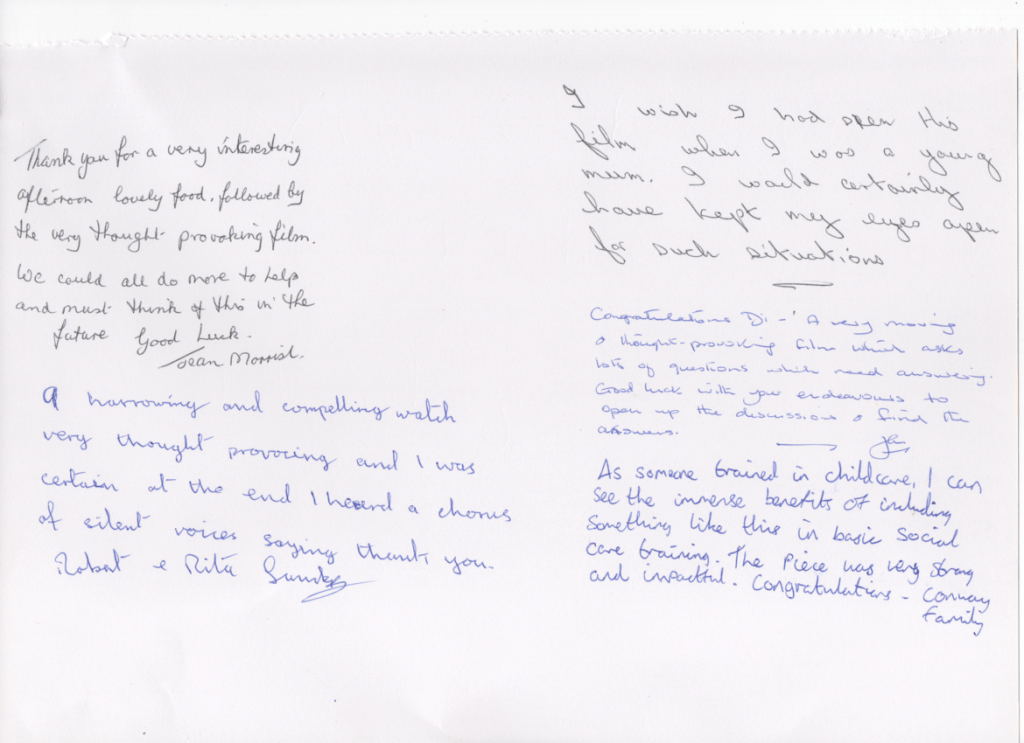 Thank you for a very interesting
afternoon lovely food, followed by
the very thought provoking film.
We could all do more to help
and must think of this in the
future Good Luck.
Jean Morris
A harrowing and compelling watch
very thought provocing and I was
certain at the end I heard a chorus
of silent voices saying thank you.
Robert & Rita
I wish I had seen this
film when I was a young
mum. I would certainly
have kept my eyes open
for such situations
Congratulations Di - A very moving
& thought-provoking film which asks
lots of questions which need answering.
Good luck with your endeavours to
open up the discussions & find the
answers.
As someone trained in childcare, I can
see the immense benefits of including
something like this in basic Social
care training. The piece was very strong
and impactful. Congratulations - Conway
Family